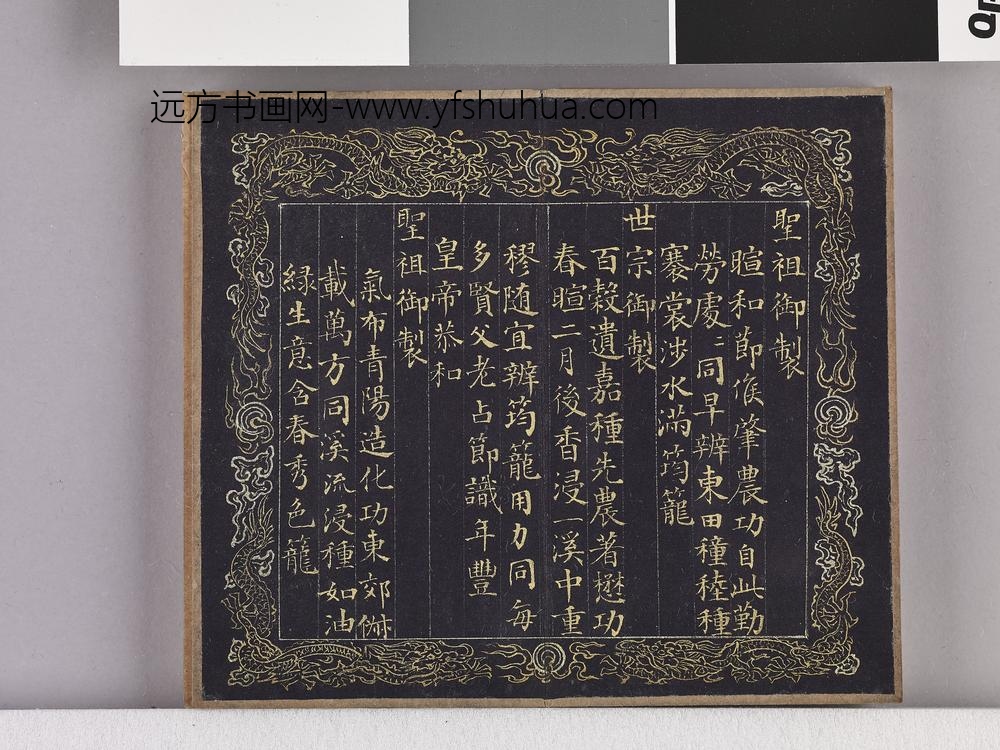 远方书画网-www.yfshuhua.com
聖祖御製
暄和節候肇農功自此勤
勞處〻同早辨東田穜稑種
褰裳涉水滿筠籠
世宗御製
百穀遺嘉種先農著懋功
春暄二月後香浸一溪中重
穋随宜辨筠籠用力同每
多賢父老占節識年豐
皇帝恭和
聖祖御製
氣布青陽造化功東郊俶
載萬方同溪流浸種如油
緑生意含春秀色籠